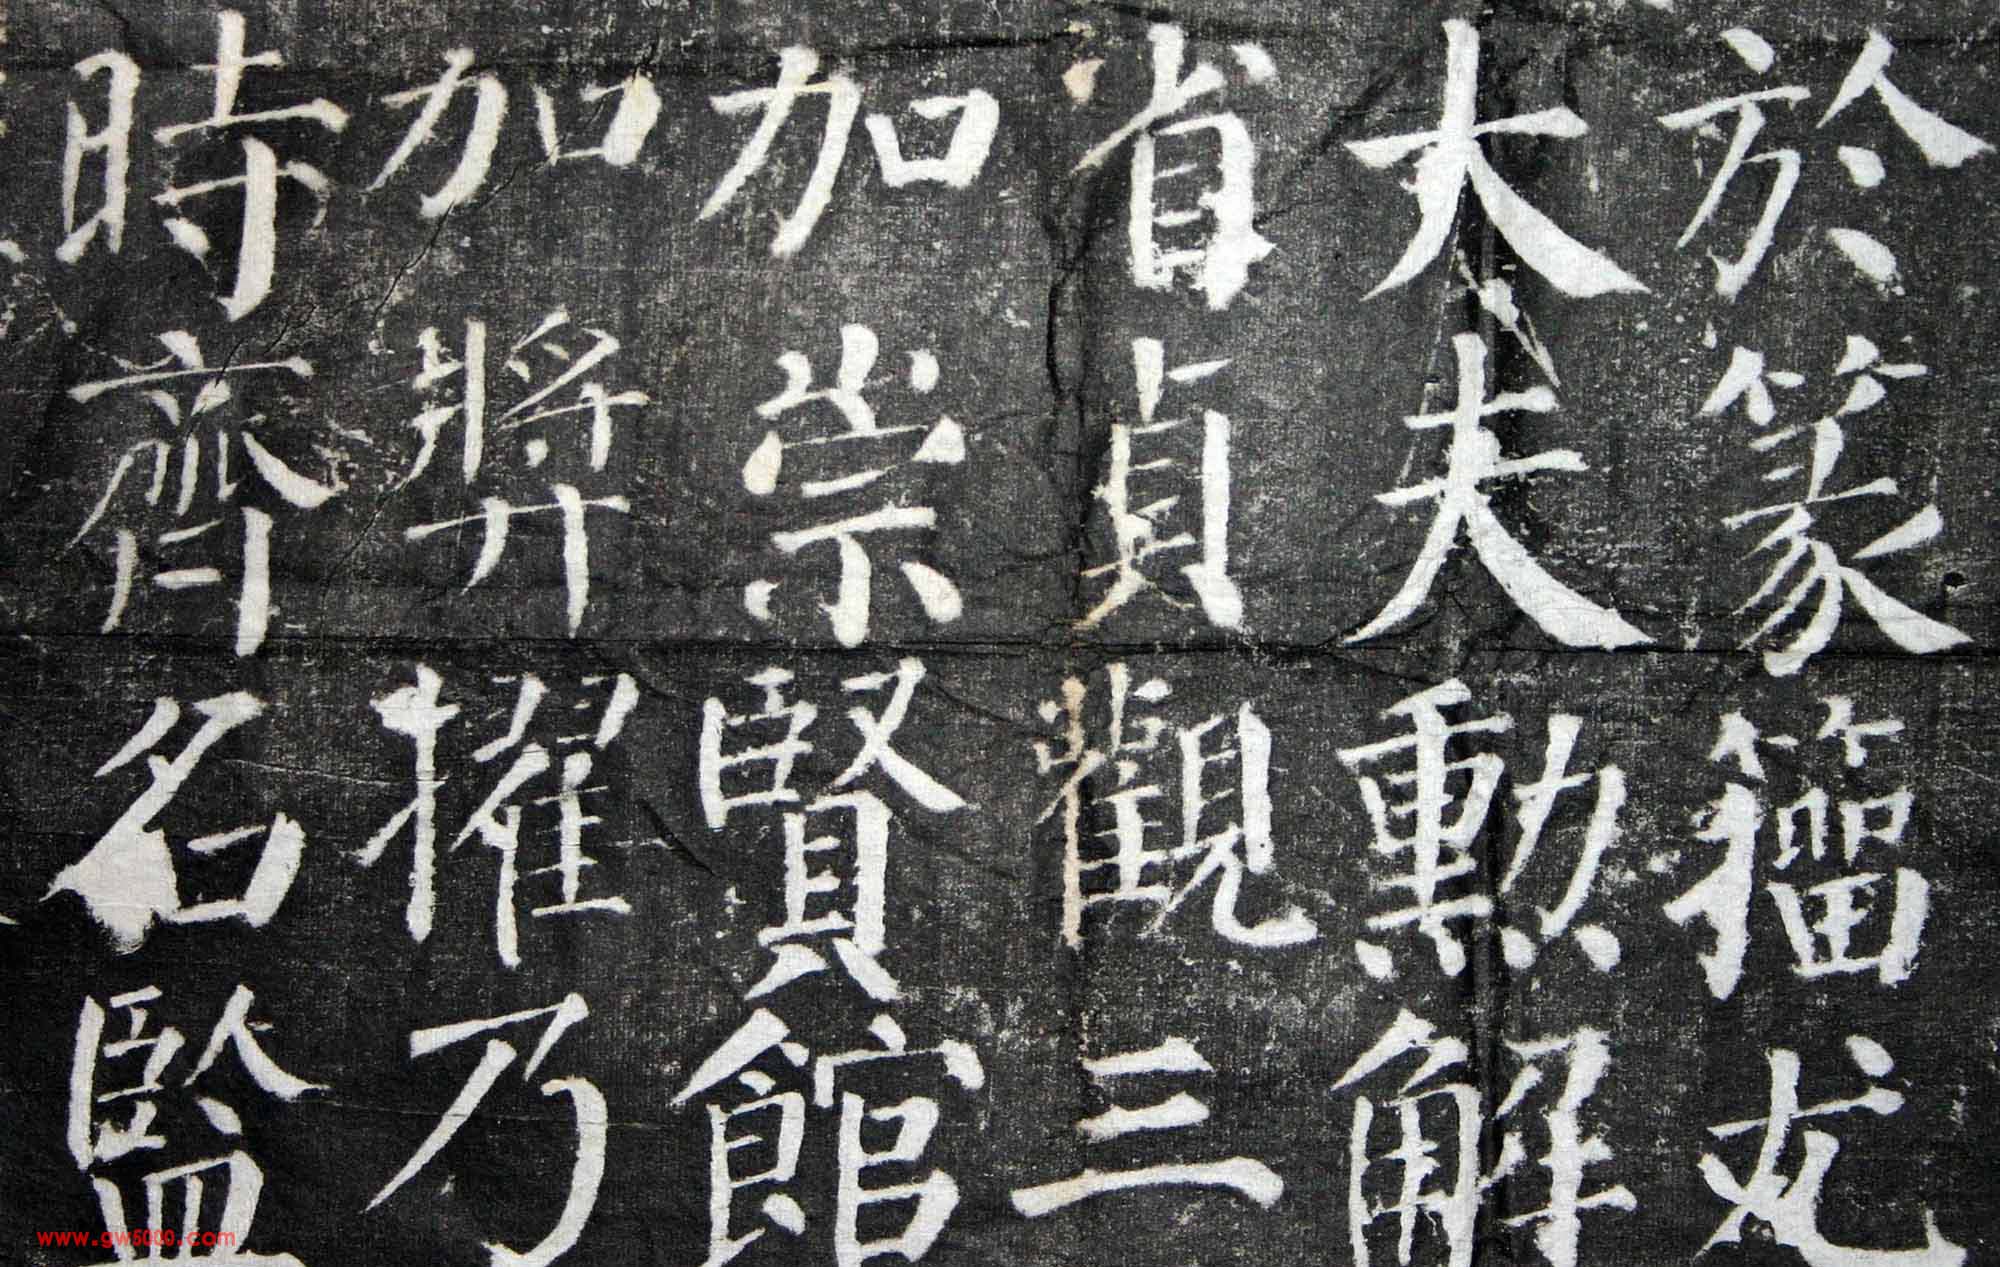 於篆籀尤
大夫勳解
省貞觀三
加崇賢館
加獎擢乃
時齊名監
www.gw5000.com